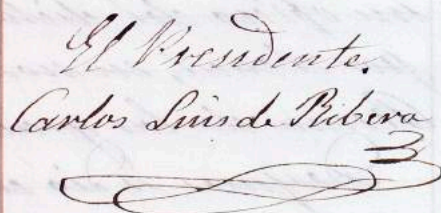 El Presidente.
Carlos Luis de Ribera